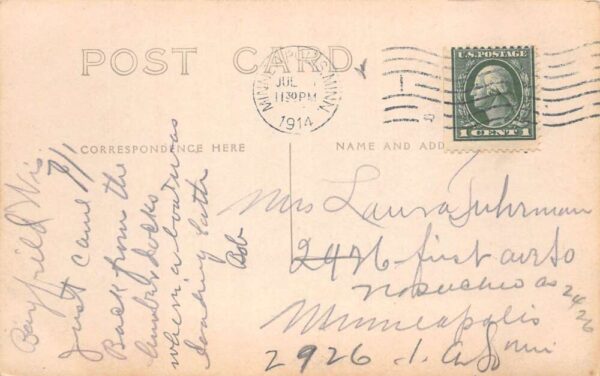 POST CARD
MINNEAPOLIS, MINN.
JUL
11 30 PM
1914
U.S. POSTAGE
1 CENT 1
CORRESPONDENCE HERE
NAME AND ADD
Bayfield Wis.
Just came 7/1
Back from the
docks
when a boat was
loading
Bob
Mrs Laura Fuhrman
2426 first
no such as
2426
Minneapolis
2926